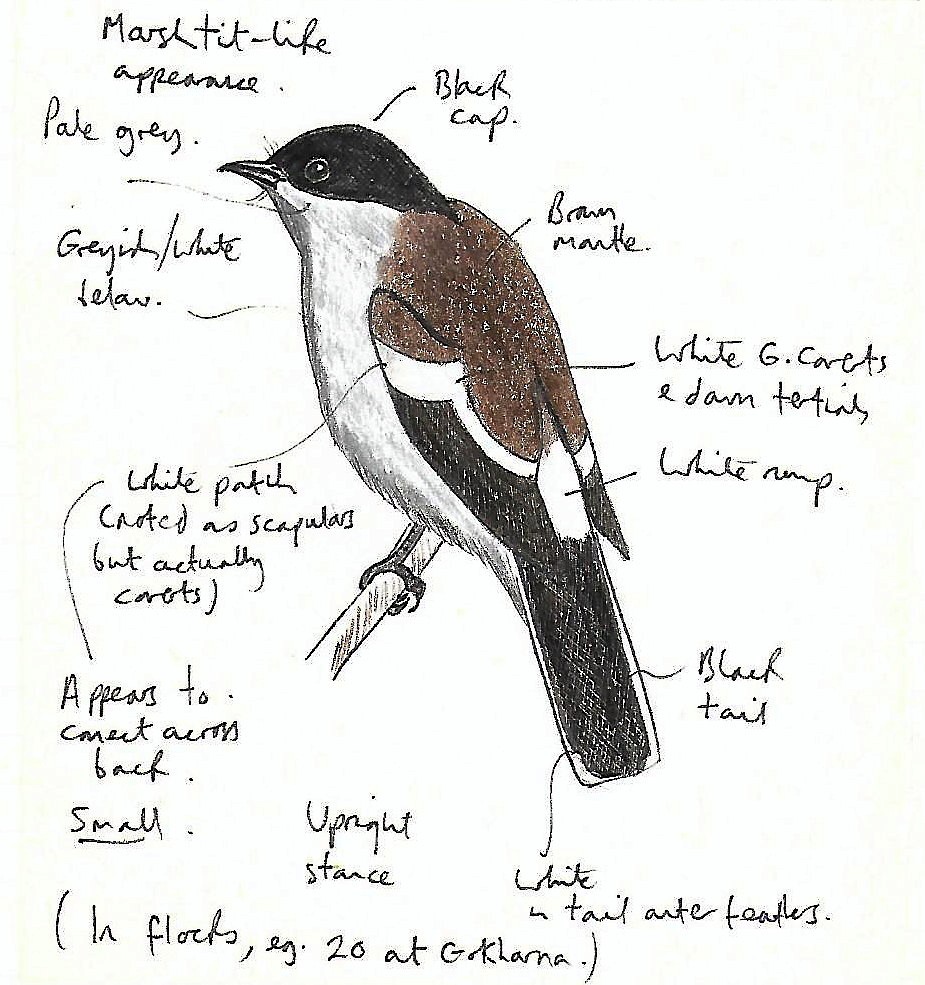 Marsh tit-like
appearance.
Black
cap.
Pale grey.
Brown
mantle.
Greyish/white
below.
White G. coverts
& down tertials
White rump.
White patch
(noted as scapulars
but actually
coverts)
Appears to
connect across
back.
Black
tail
Small.
Upright
stance
White
in tail outer feathers.
(In flocks, eg. 20 at Gokharna.)